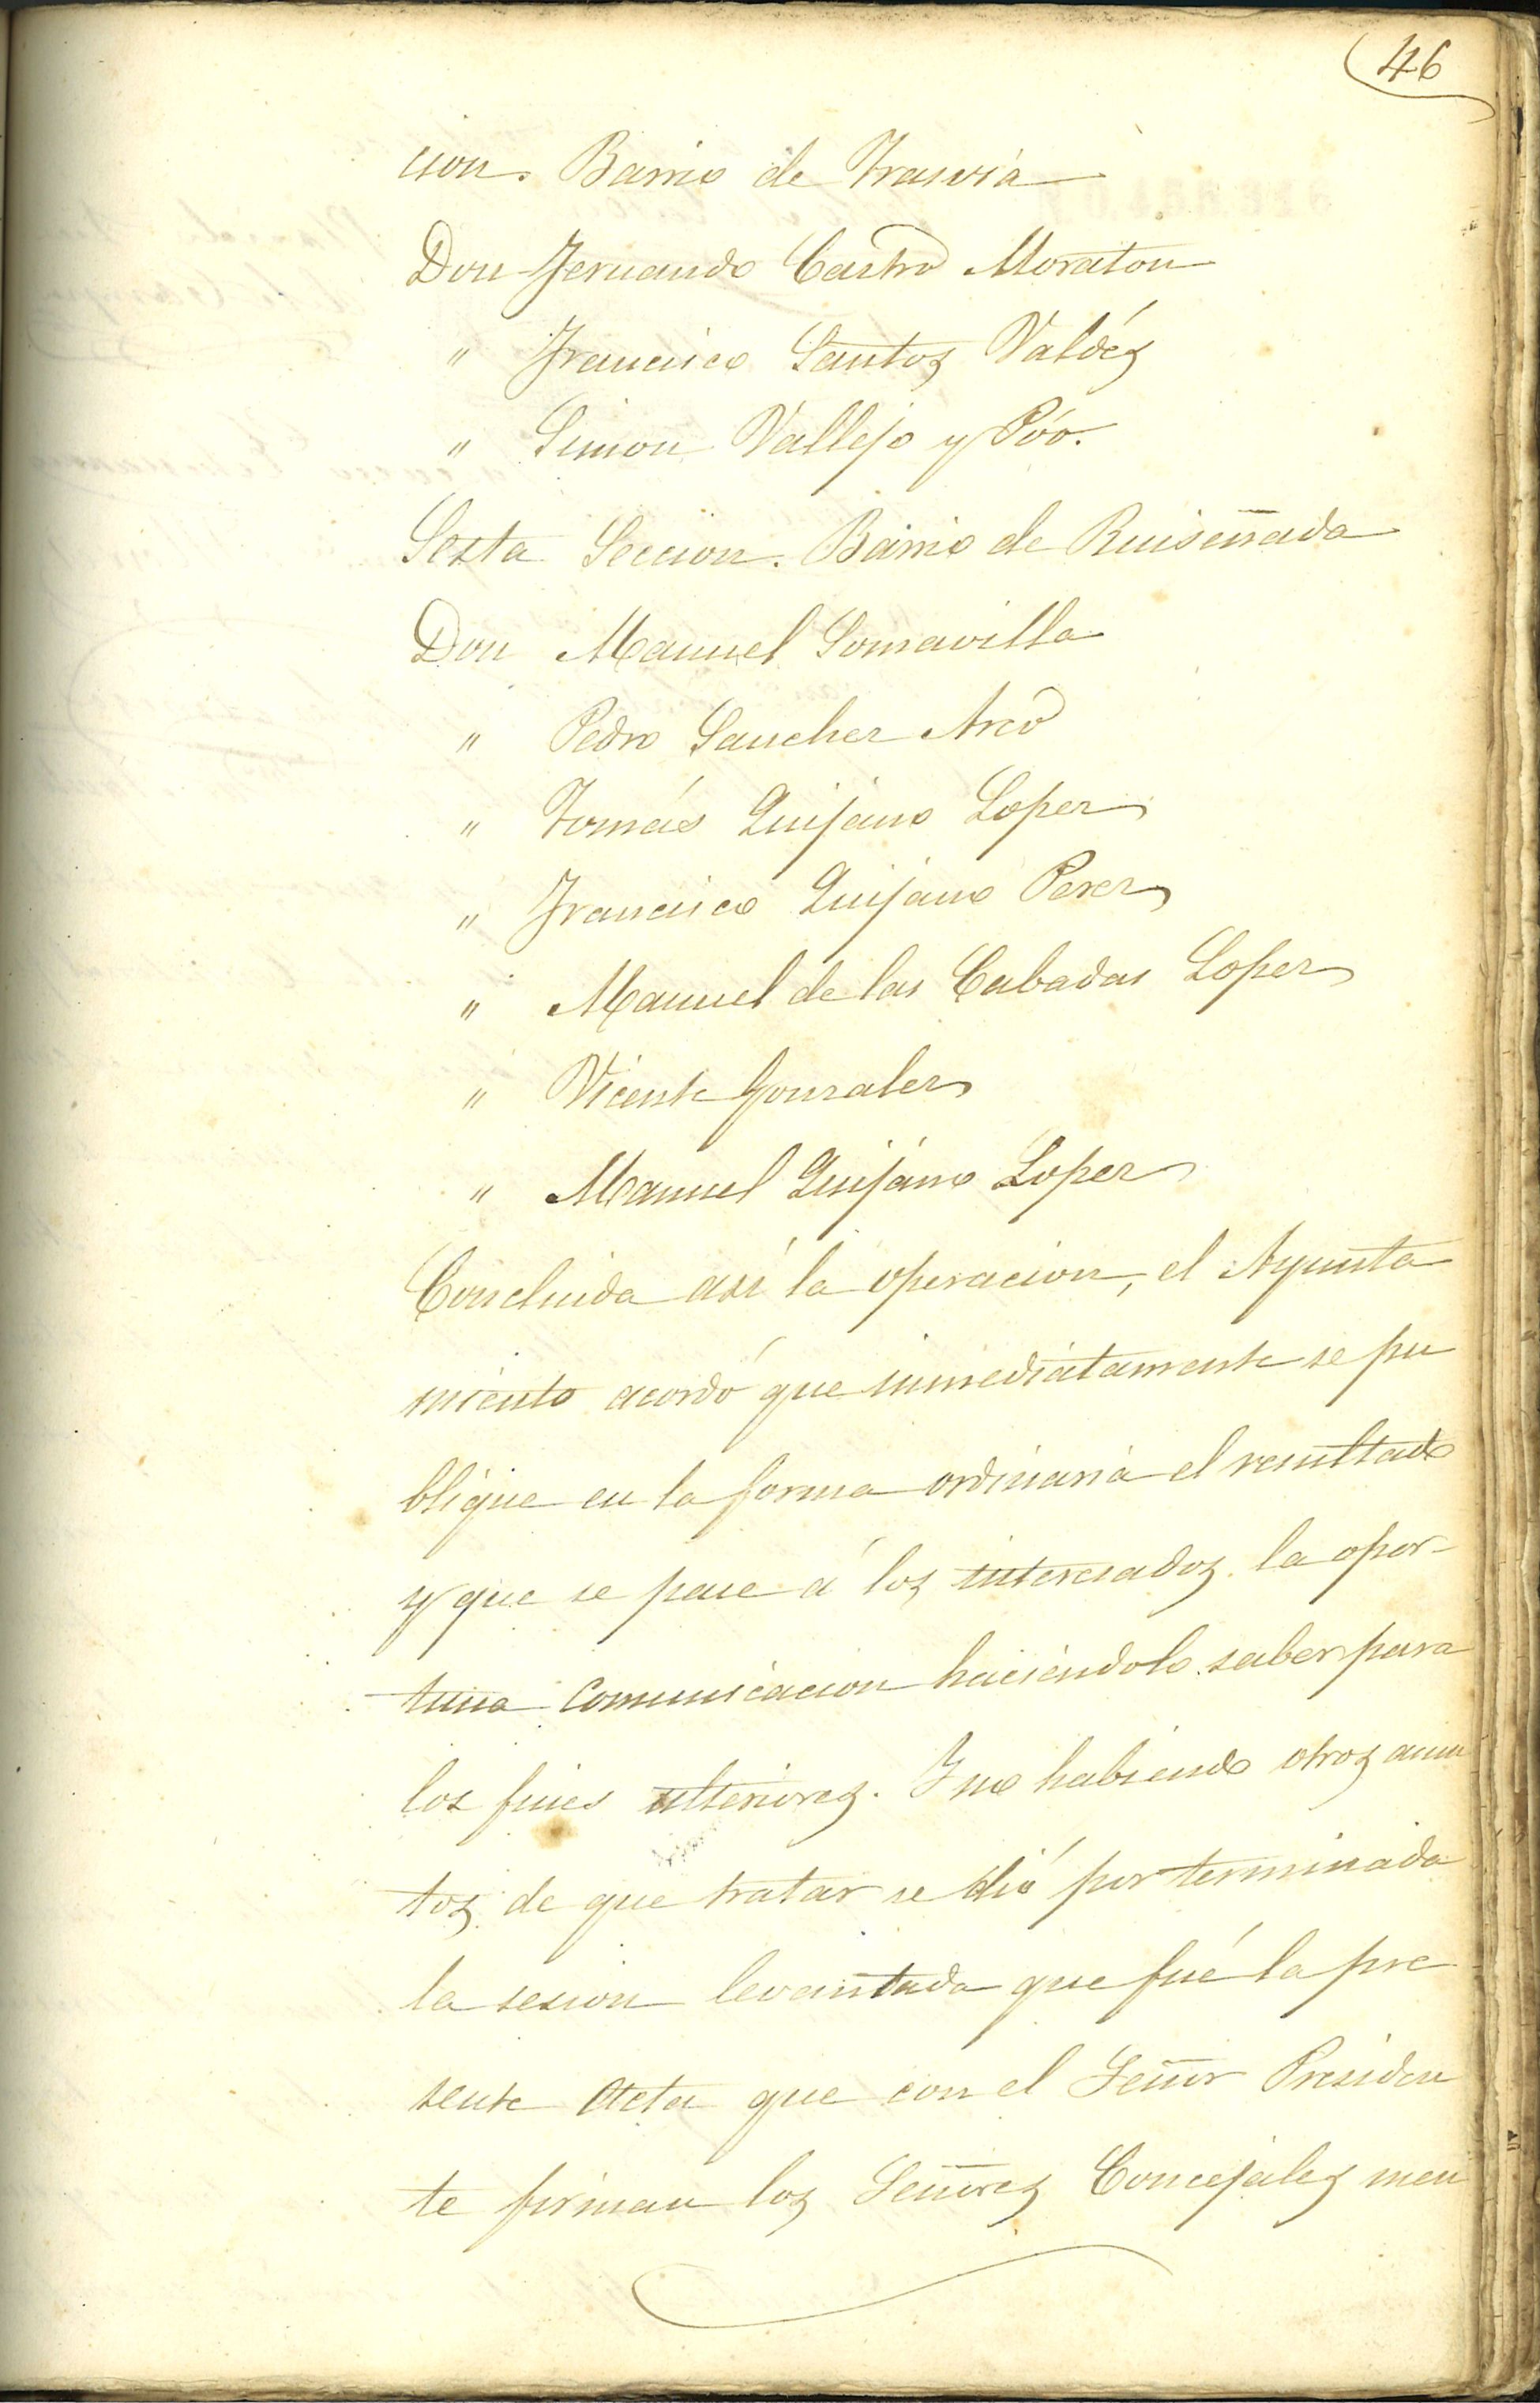 46
cion. Barrio de Trasvia
Don Fernando Castro Moraton
" Francisco Santos Valdés
" Simon Vallejo y Póo.
Sesta Seccion. Barrio de Ruiseñada
Don Manuel Somavilla
" Pedro Sanchez Arco
" Tomás Quijano Lopez
" Francisco Quijano Perez
" Manuel de las Cabadas Lopez
" Vicente Gonzalez
" Manuel Quijano Lopez
Concluida asi la operacion, el Ayunta
miento acordó que inmediatamente se pu
blique en la forma ordinaria el resultado
y que se pase á los interesados la opor-
tuna comunicacion haciéndolo saber para
los fines ulteriores. Y no habiendo otros asun
tos de que tratar se dió por terminada
la sesion levantada que fué la pre
sente Acta que con el Señor Presiden
te firman los Señores Concejales men